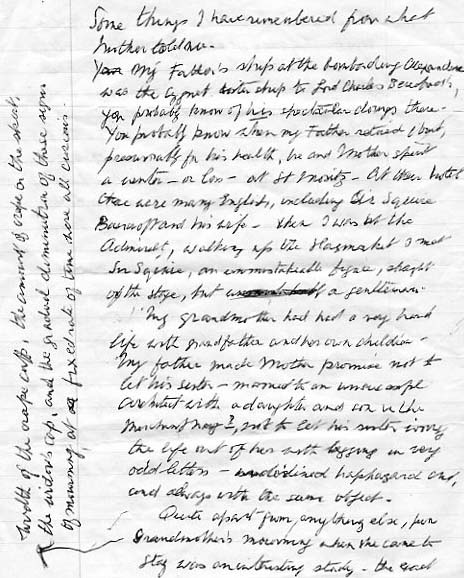 Some things I have remembered from what
Mother told me.
My Father's ship at the bombarding Alexandria
was the Cygnet sister ship to Lord Charles Beresford's,
you probably know of his spectacular doings there.
You probably know when my Father retired, but,
presumably for his health, he and Mother spent
a winter – or less – at St Moritz – At their hotel
there were many English, including Sir Squire
Bancroft and his wife – When I was at the
Admiralty, walking up the Haymarket I met
Sir Squire, an unmistakable figure, straight
off the stage, but a gentleman.
My grandmother had had a very hard
life with grandfather and her own children –
My father made Mother promise not to
let his sister – married to an unsuccessful
architect with a daughter and son in the
Merchant Navy?, not to let his sister worry
the life out of her with begging in very
odd letters – underlined haphazard and,
and always with the same object.
Quite apart from anything else, poor
Grandmother's mourning when she came to
stay was an interesting study – the good
breadth of the crape cuffs, the amount of crape on the skirt,
the widow's cap, and the gradual diminution of these signs
of mourning, at a fixed rate of time were all curious.